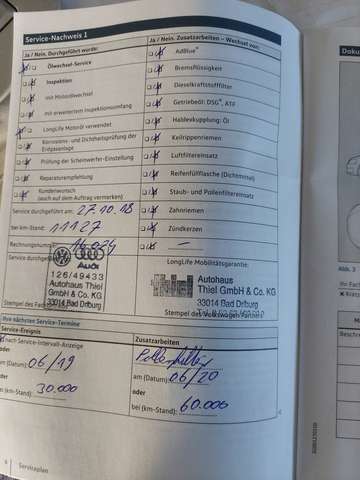 Service-Nachweis 1
Ja / Nein. Durchgeführt wurde:
Ölwechsel-Service
Inspektion
mit Motorölwechsel
mit erweitertem Inspektionsumfang
LongLife Motoröl verwendet
Korrosions- und Dichtheitsprüfung der
Erdgasanlage
Prüfung der Scheinwerfer-Einstellung
Reparaturempfehlung
Kundenwunsch
(auch auf dem Auftrag vermerken)
Service durchgeführt am: 27.10.18
bei km-Stand: 11127
Rechnungsnummer:
Service durchgeführt
Audi
126/49433
Autohaus Thiel
GmbH & Co. KG
33014 Bad Driburg
Ja / Nein. Zusatzarbeiten – Wechsel von:
AdBlue®
Bremsflüssigkeit
Dieselkraftstofffilter
Getriebeöl: DSG®, ATF
Haldexkupplung: Öl
Keilrippenriemen
Luftfiltereinsatz
Reifenfüllflasche (Dichtmittel)
Staub- und Pollenfiltereinsatz
Zahnriemen
Zündkerzen
—
LongLife Mobilitätsgarantie:
Autohaus
Thiel GmbH & Co. KG
33014 Bad Driburg
Stempel des Volkswagen
Ihre nächsten Service-Termine
Service-Ereignis
nach Service-Intervall-Anzeige
oder
am (Datum): 06/19
oder
bei (km-Stand):
30.000
Zusatzarbeiten
Pollenfilter
am (Datum): 06/20
oder
bei (km-Stand):
60.000
Serviceplan
Doku
Ja
Beschre